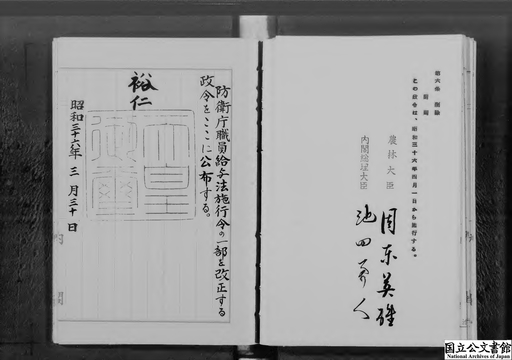 第六条 削除
附則
この政令は、昭和三十六年四月一日から施行する。
農林大臣 周東英雄
内閣総理大臣 池田勇人
防衛庁職員給与法施行令の一部を改正する
政令をここに公布する。
裕仁
天皇御璽
昭和三十六年三月三十日
国立公文書館
National Archives of Japan